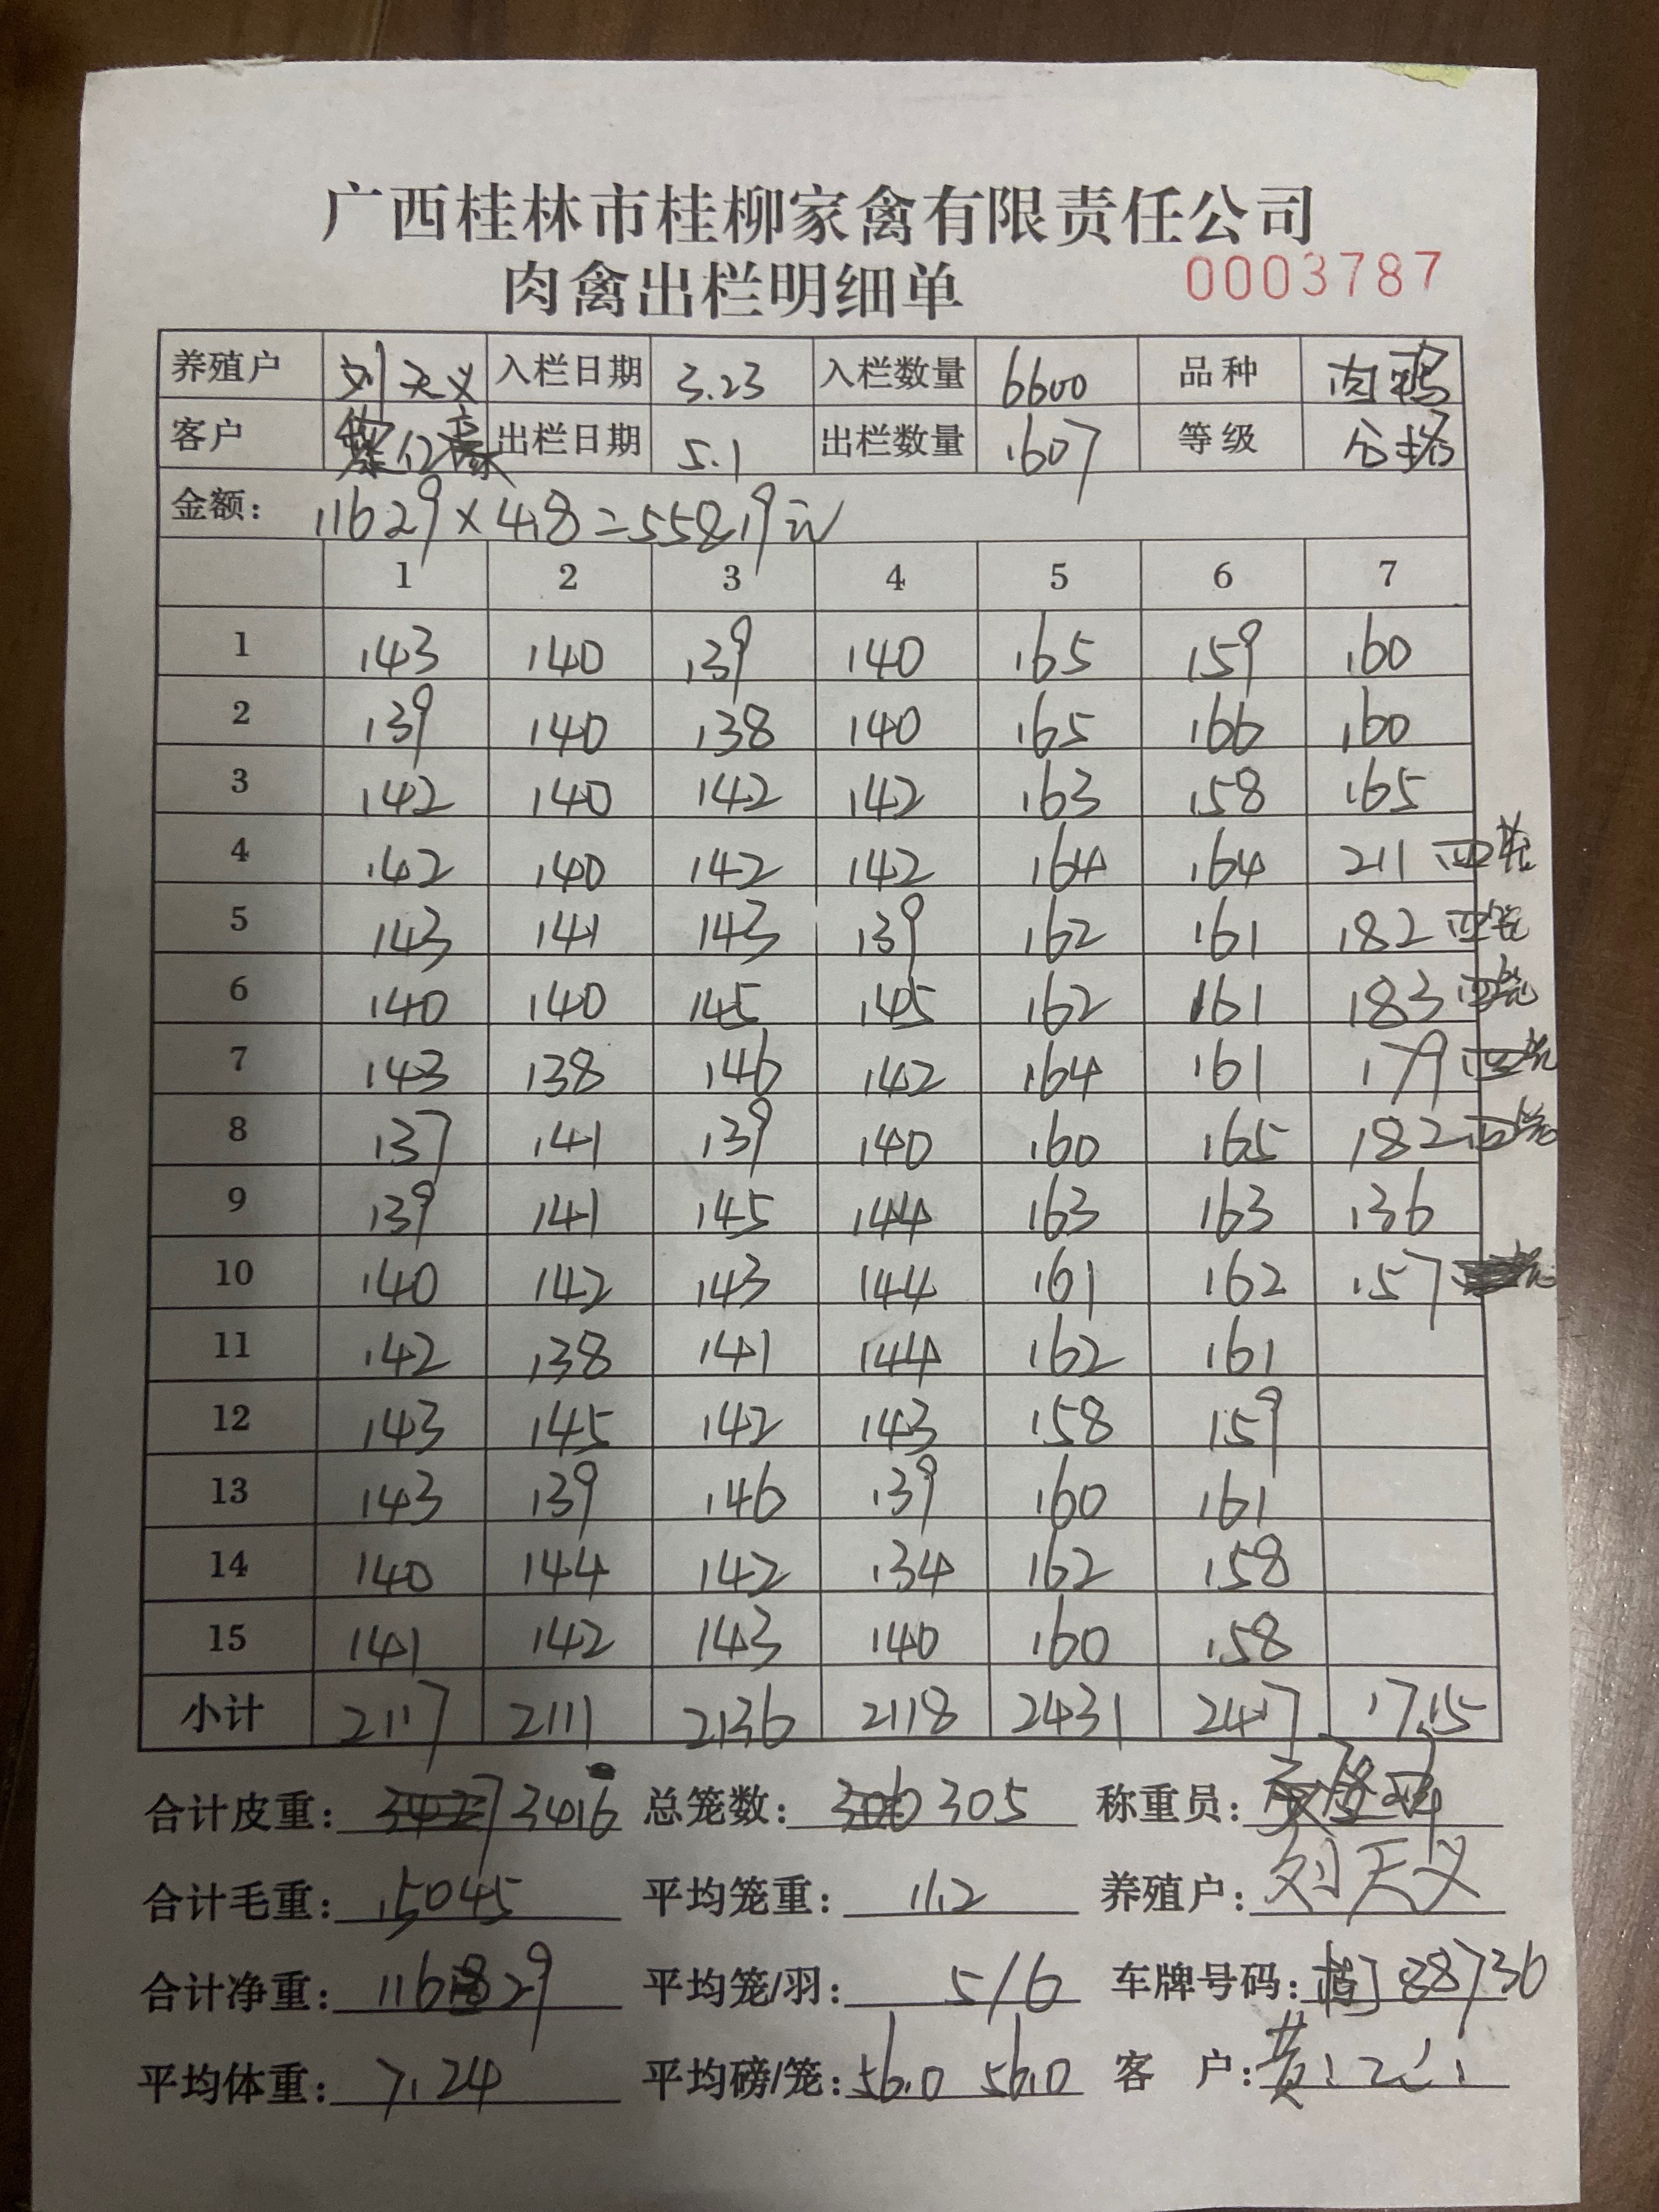 广西桂林市桂柳家禽有限责任公司
肉禽出栏明细单 0003787
养殖户 刘天义 入栏日期 3.23 入栏数量 6600 品种 肉鸭
客户 亿豪 出栏日期 5.1 出栏数量 1607 等级 合格
金额: 11629×4.8=55819元
1 2 3 4 5 6 7
1 143 140 139 140 165 159 160
2 139 140 138 140 165 166 160
3 142 140 142 142 163 158 165
4 142 140 142 142 164 164 211 四笼
5 143 141 143 139 162 161 182 四笼
6 140 140 145 145 162 161 183 四笼
7 143 138 146 142 164 161 179 四笼
8 137 141 139 140 160 165 182 四笼
9 139 141 145 144 163 163 136
10 140 142 143 144 161 162 157
11 142 138 141 144 162 161
12 143 145 142 143 158 159
13 143 139 146 139 160 161
14 140 144 142 134 162 158
15 141 142 143 140 160 158
小计 2117 2111 2136 2118 2431 2417 1715
合计皮重: 3416 总笼数: 305 称重员:
合计毛重: 15045 平均笼重: 11.2 养殖户: 刘天义
合计净重: 11629 平均笼/羽: 5/6 车牌号码: 88736
平均体重: 7.24 平均磅/笼: 56.0 56.0 客 户: 黄